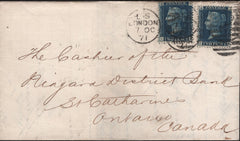 L.S
LONDON
7 OC
71
The Cashier of the
Niagara District Bank
St Catharines
Ontario
Canada